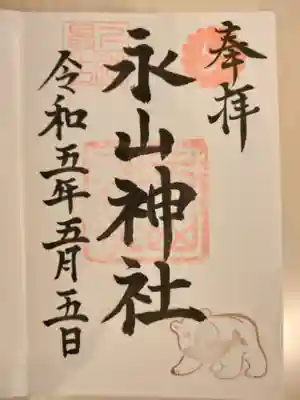 奉拝
永山神社
令和五年五月五日